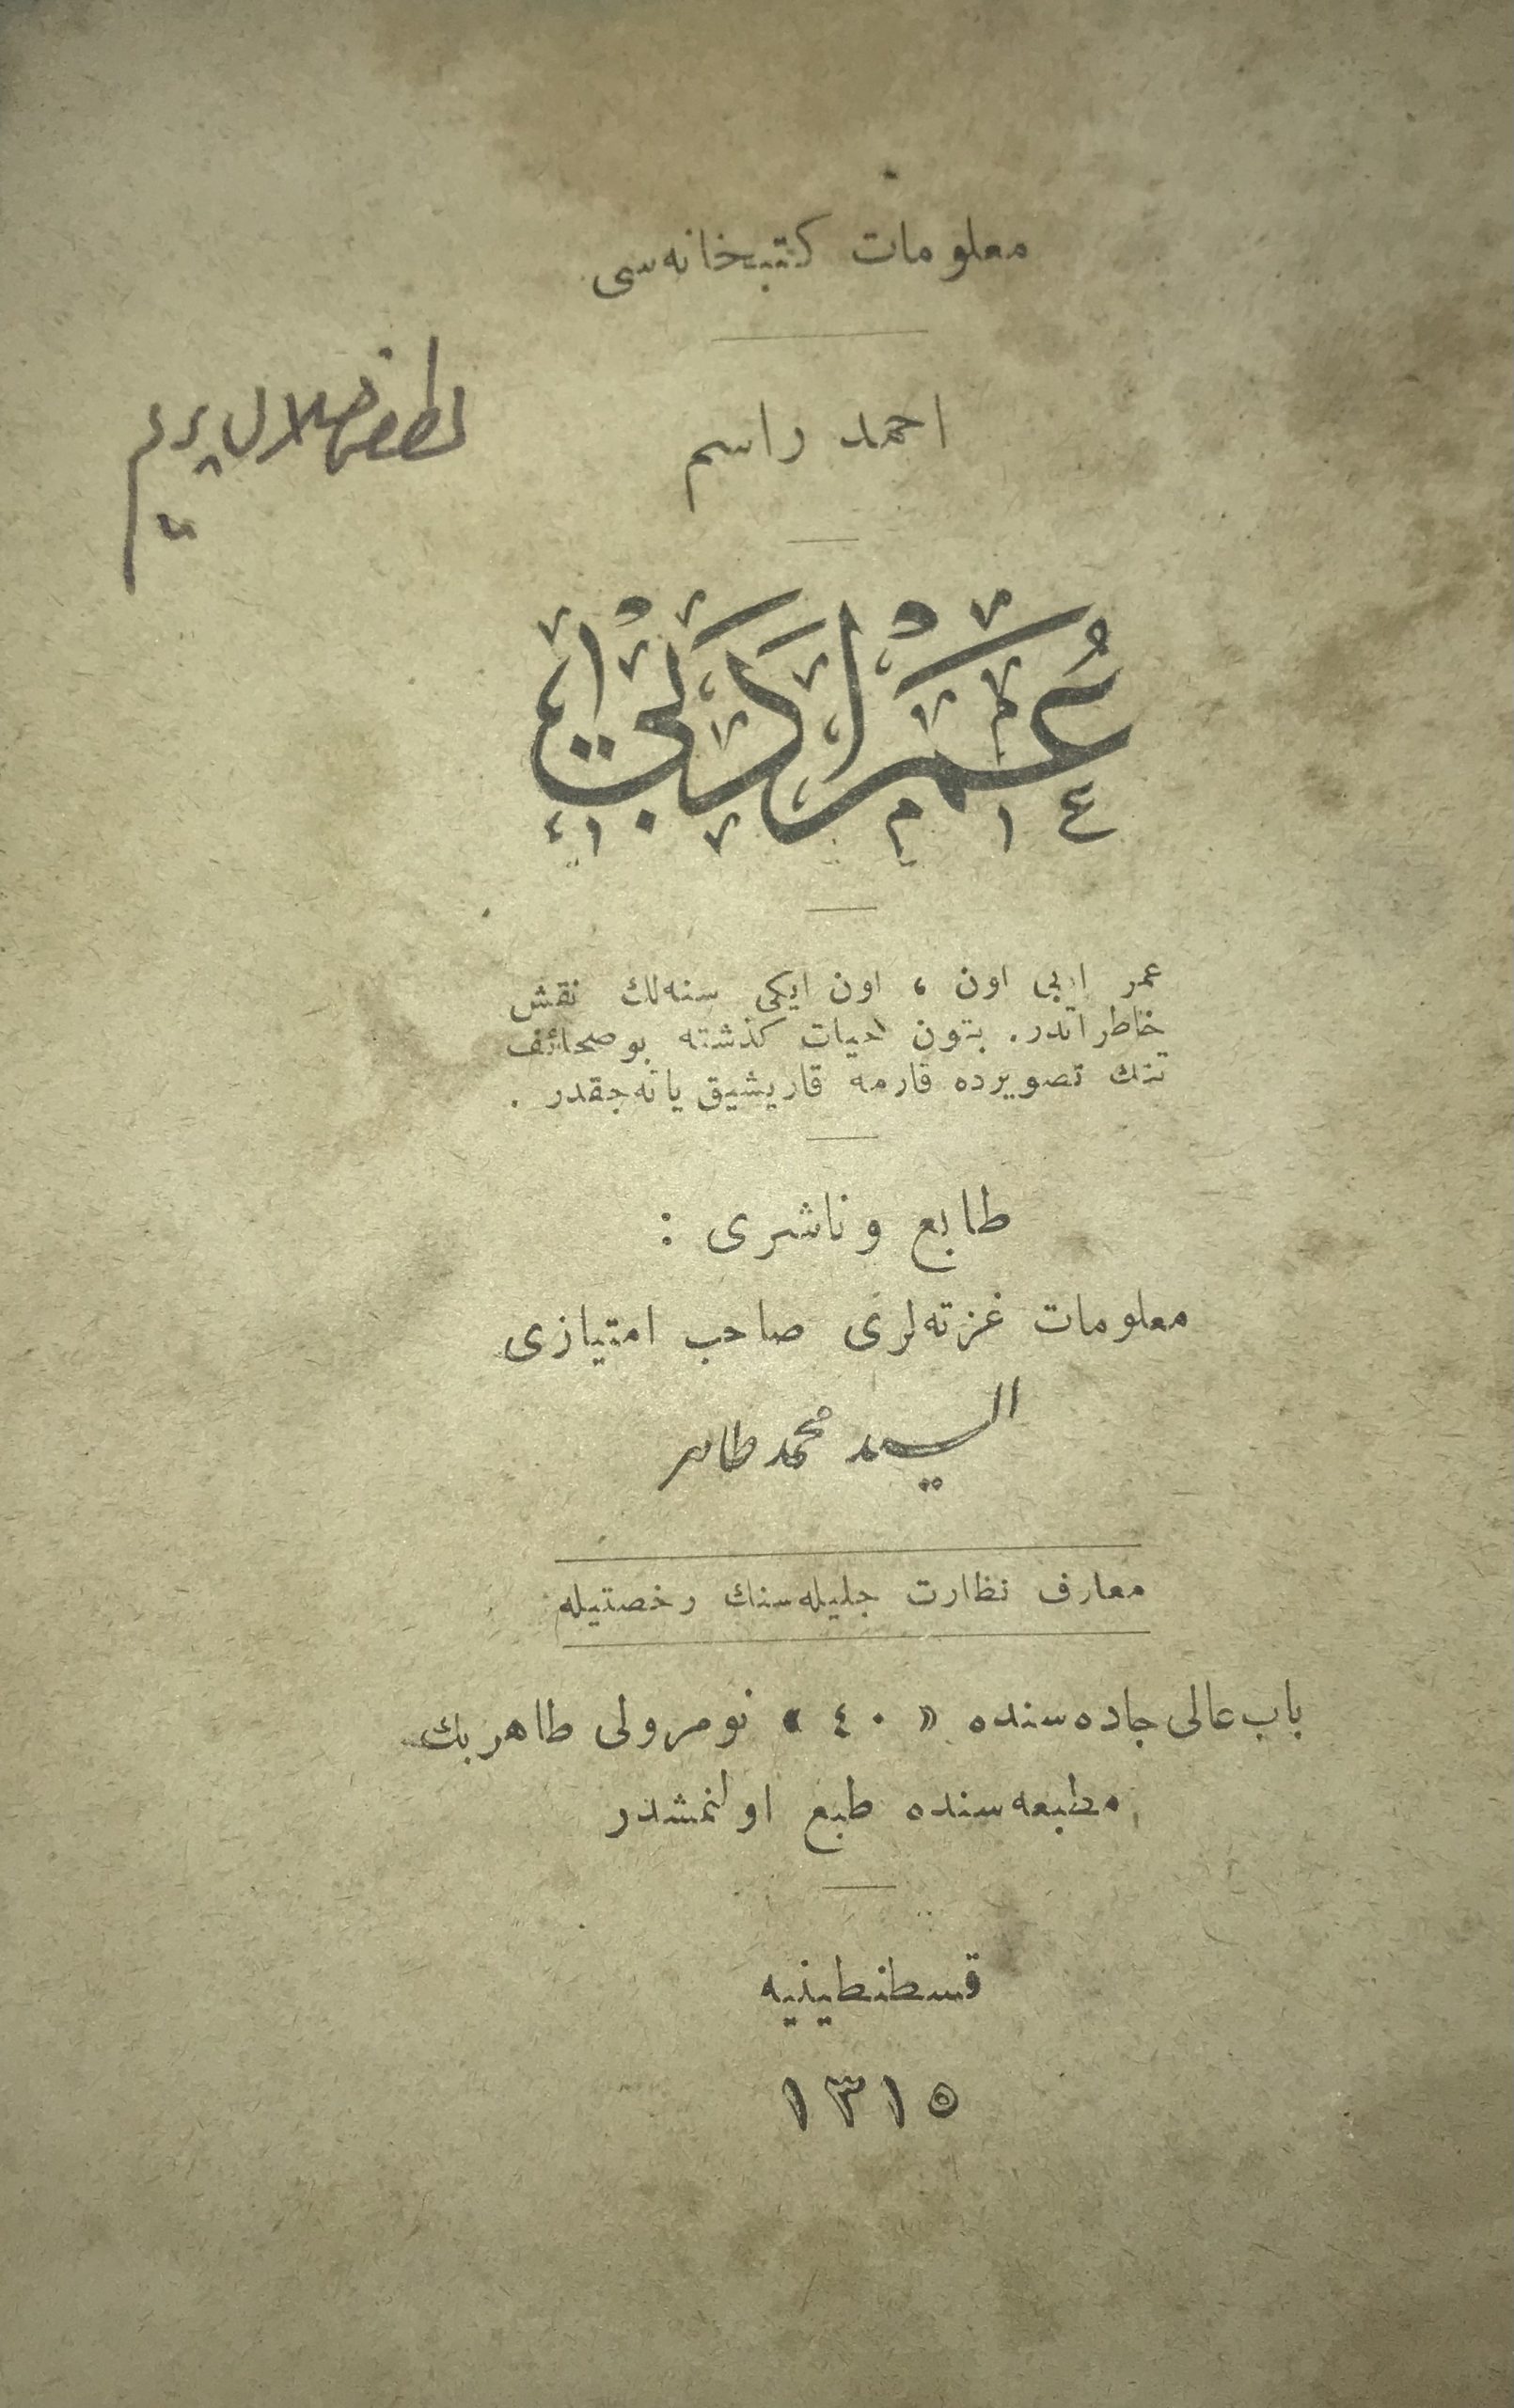 معلومات كتبخانه‌سی
احمد راسم
عمر ادبی
عمر ادبی اون ، اون ایكی سنه‌لك نقش
خاطراتدر. بتون حیات كذشته بو صحائف
تصویرده قارمه قاریشیق یاته‌جقدر .
طابع و ناشری :
معلومات غزته‌لری صاحب امتیازی
السید محمد طاهر
معارف نظارت جلیله‌سنك رخصتیله
باب عالی جاده‌سنده « ٤٠ » نومرولی طاهر بك
مطبعه‌سنده طبع اولنمشدر
قسطنطینیه
١٣١٥